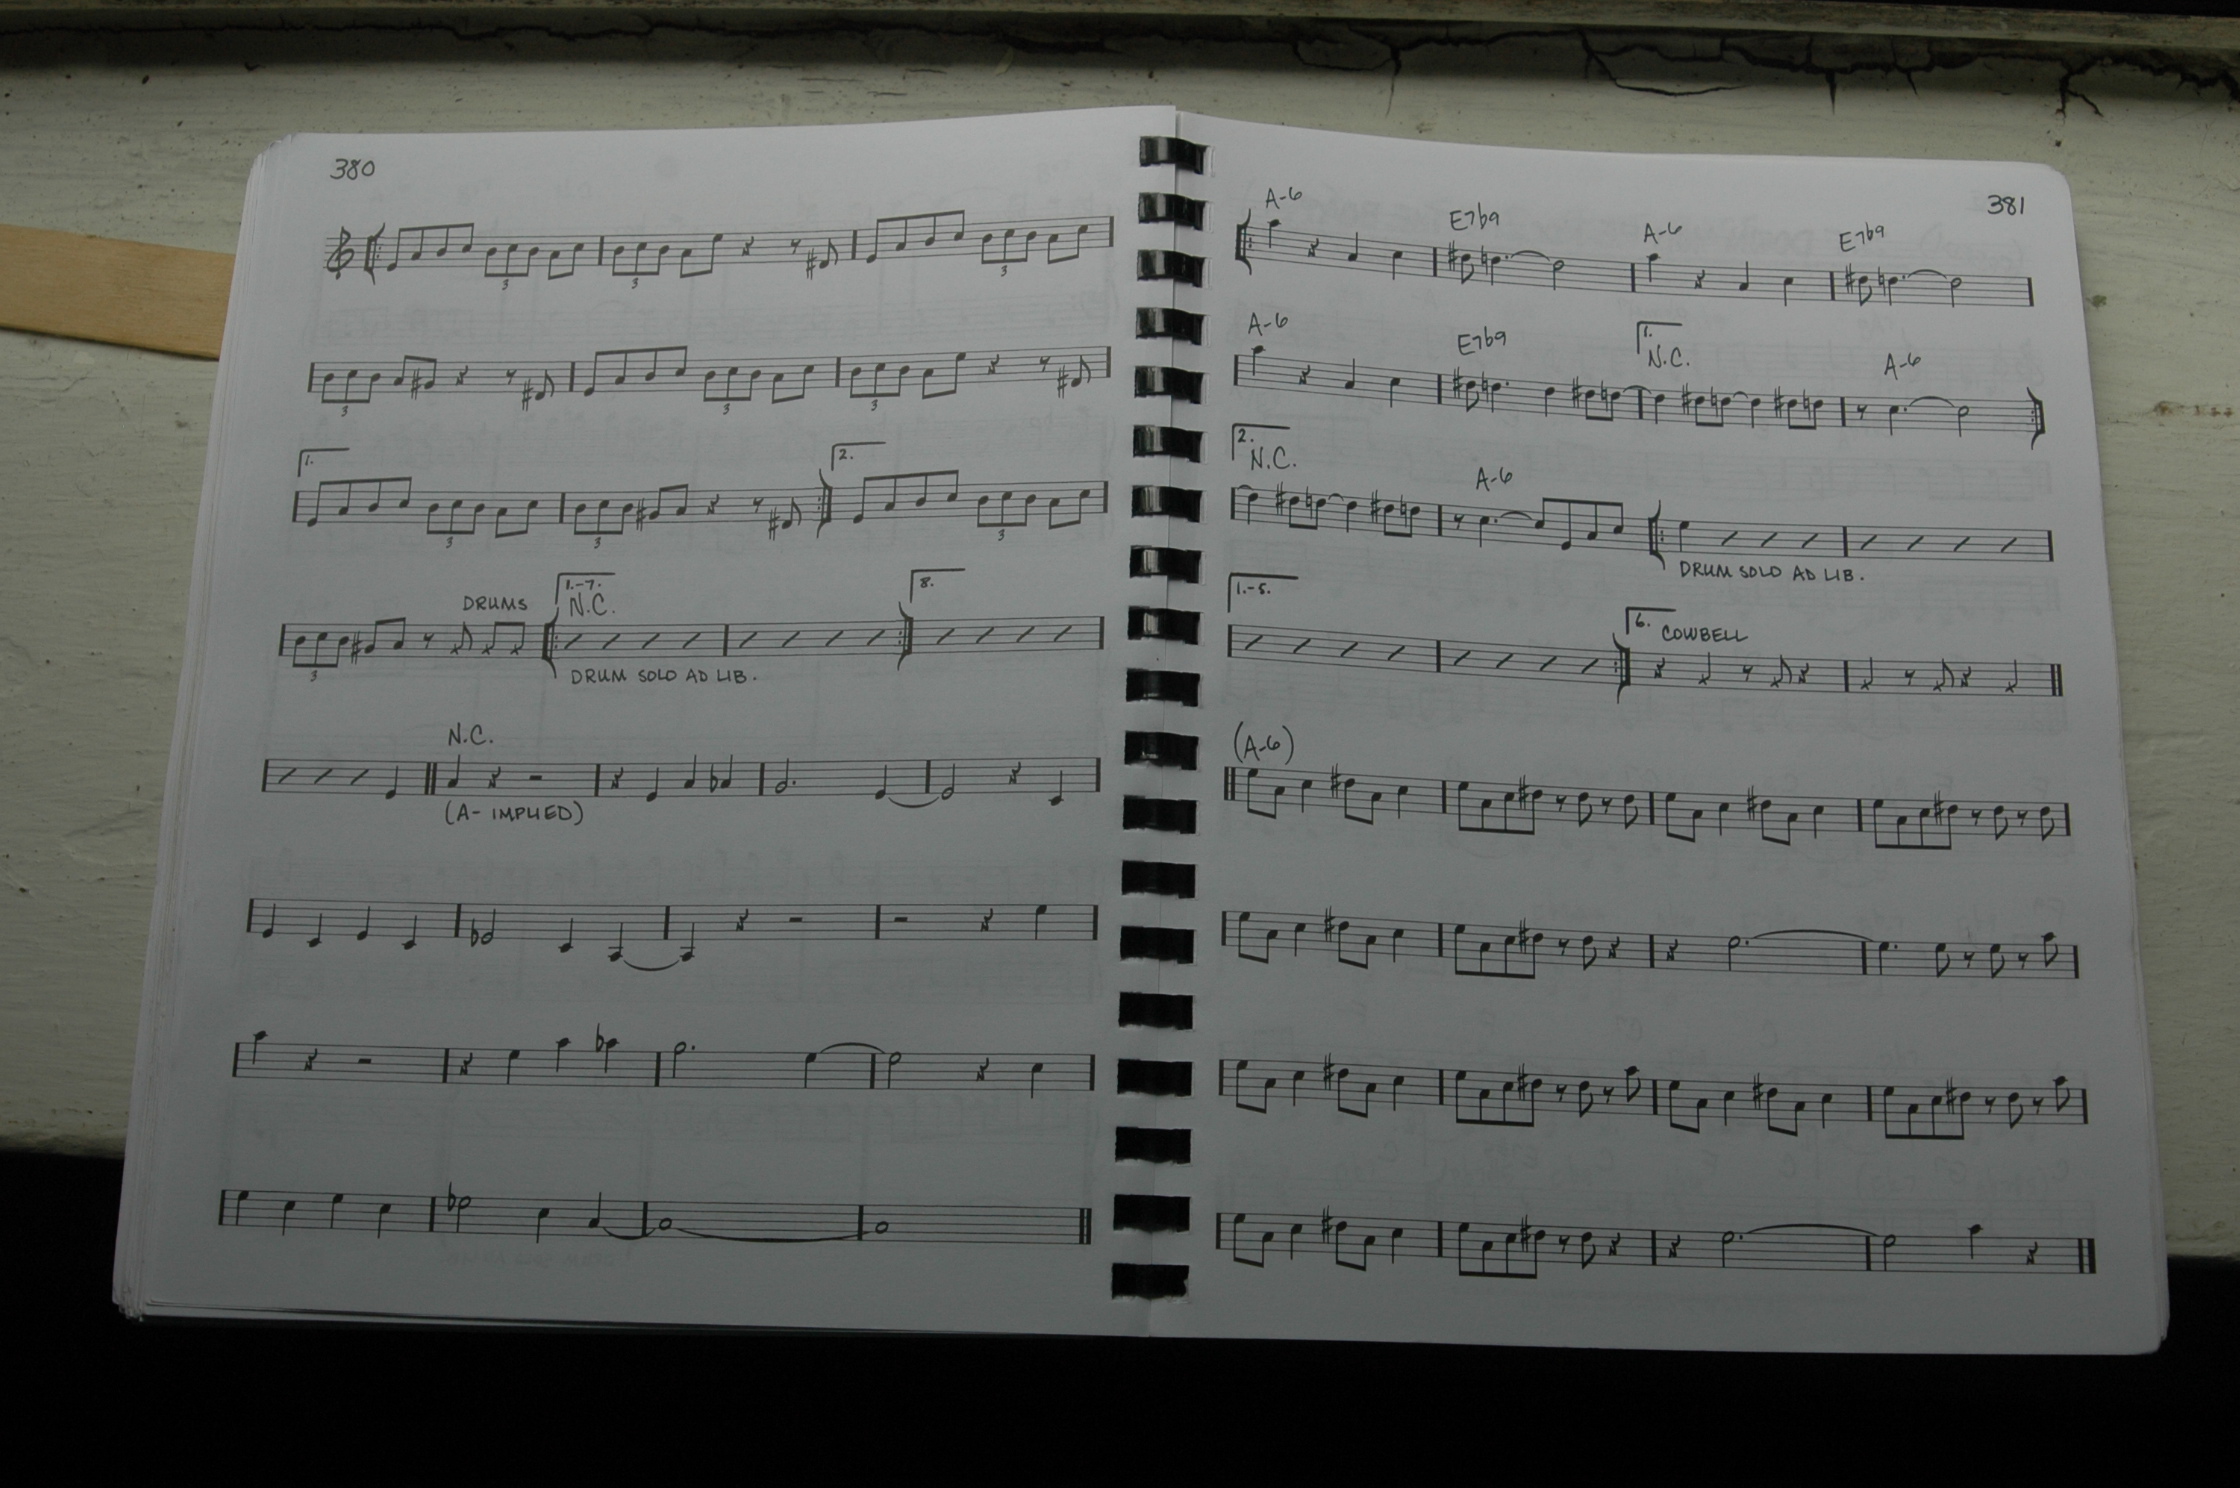 380
3 3 3
3 3 3
1. 2.
3 3 3
DRUMS 1.-7. N.C. 8.
3
DRUM SOLO AD LIB.
N.C.
(A- IMPLIED)
381
A-6 E7b9 A-6 E7b9
A-6 E7b9 1. N.C. A-6
2. N.C. A-6
DRUM SOLO AD LIB.
1.-5. 6. COWBELL
(A-6)